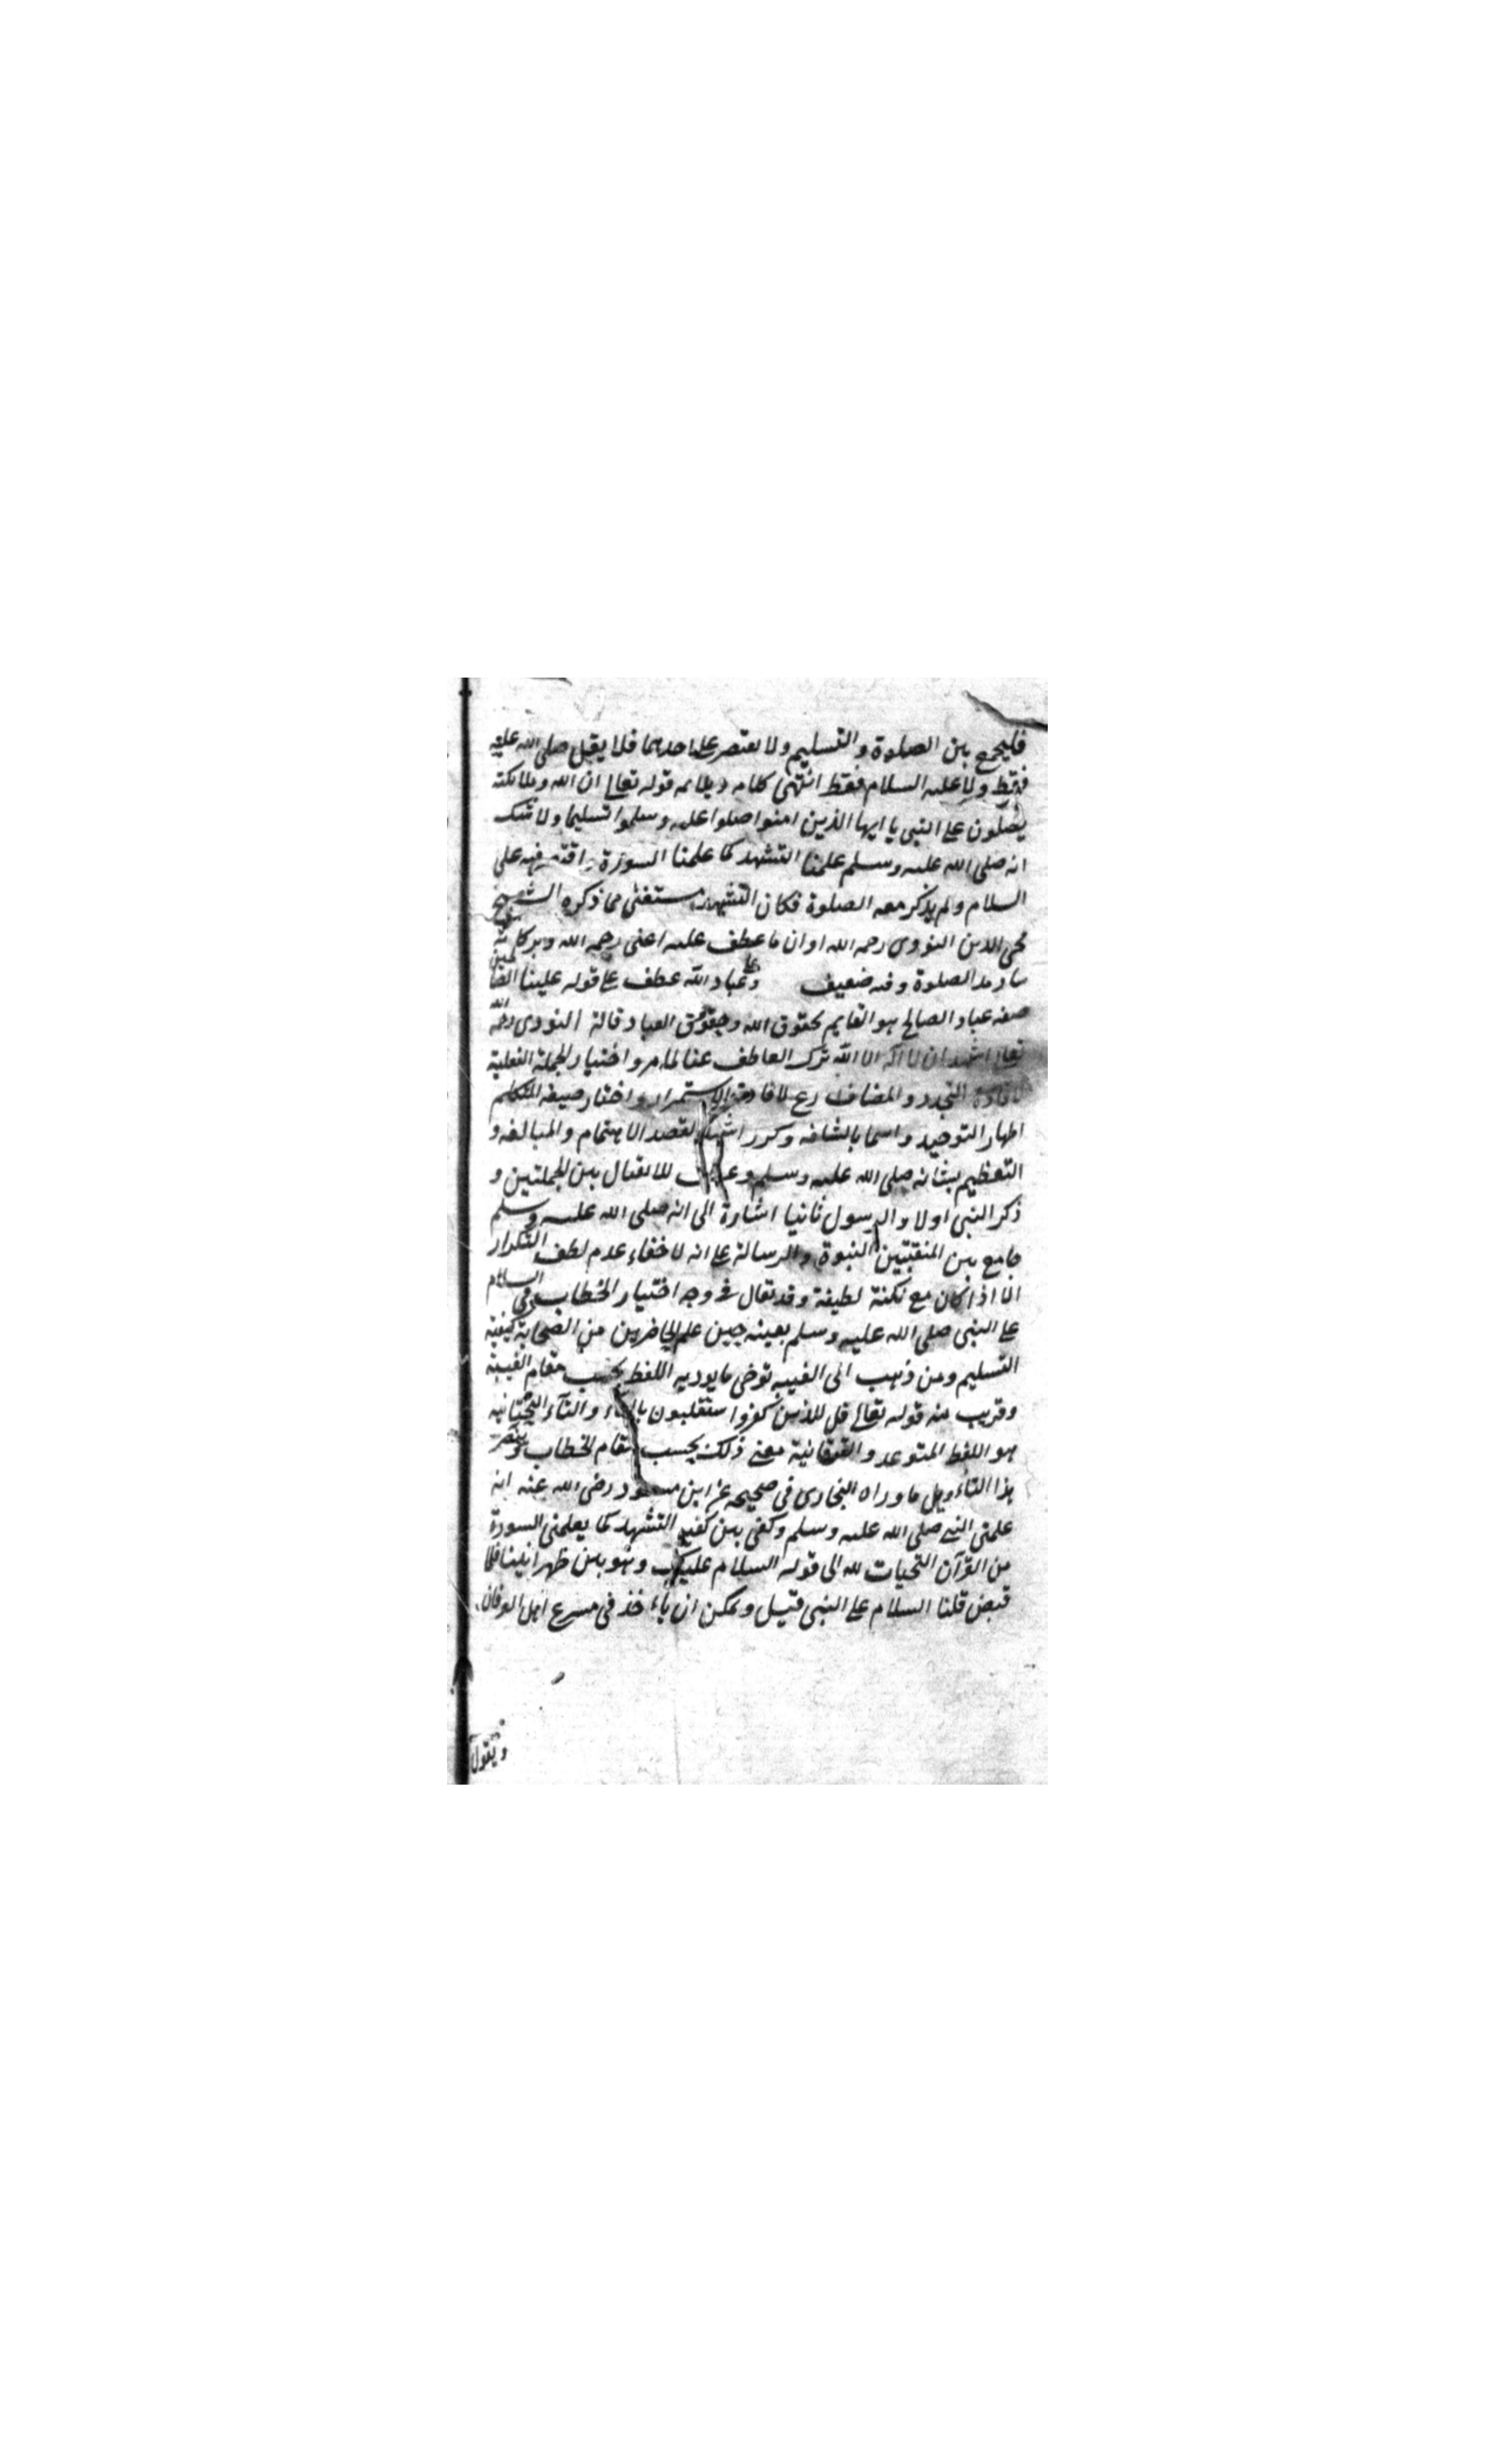 فليجمع بين الصلوة والتسليم ولا يقتصر على احدهما فلا يقل صلى الله عليه
فقط ولا عليه السلام فقط انتهى كلامه ويلائمه قوله تعالى ان الله وملائكته
يصلون على النبي يا ايها الذين امنوا صلوا عليه وسلموا تسليما ولا شك
انه صلى الله عليه وسلم علمنا التشهد كما علمنا السورة واقتصر فيه على
السلام ولم يذكر معه الصلوة فكان التشهد مستغنى مما ذكره الشيخ
محى الدين النووى رحمه الله او ان ما عطف عليه اعنى رحمه الله وبركاته
الصلوة وفيه ضعيف وعلى عباد الله عطف على قوله علينا الصالحين
صفة عباد الصالح هو القايم بحقوق الله وحقوق العباد قاله النووى رحمه الله
تعالى اشهد ان لا اله الا الله ترك العاطف عنا لما مر واختيار الجملة الفعلية
لافادة التجدد والمضارع لافادة الاستمرار واختار صيغة المتكلم
اظهار التوحيد وكرر اشهد لقصد الاهتمام والمبالغة و
التعظيم بشانه صلى الله عليه وسلم للاتصال بين الجملتين و
ذكر النبي اولا والرسول ثانيا اشارة الى انه صلى الله عليه وسلم
جامع بين المنقبتين النبوة والرسالة على انه لا خفاء عدم لطف التكرار
الا اذا كان مع نكتة لطيفة وقد يقال في وجه اختيار الخطاب في السلام
على النبي صلى الله عليه وسلم بعينه حين علم الحاضرين من الصحابة كيفية
التسليم ومن ذهب الى الغيبة توخى ما يوديه اللفظ بحسب مقام الغيبة
وقريب منه قوله تعالى قل للذين كفروا ستغلبون بالياء والتاء التحتانية
هو اللفظ المتوعد والفوقانية معنى ذلك بحسب مقام الخطاب وينصر
هذا التاءويل ما وراه البخارى في صحيحه عن ابن مسعود رضى الله عنه انه
علمنى النبي صلى الله عليه وسلم وكفى بين كفيه التشهد كما يعلمنى السورة
من القرآن التحيات لله الى قوله السلام عليكم وهو بين ظهرانينا فلما
قبض قلنا السلام على النبي قيل ويمكن ان ياءخذ في مسرع اهل العرفان
ويقول